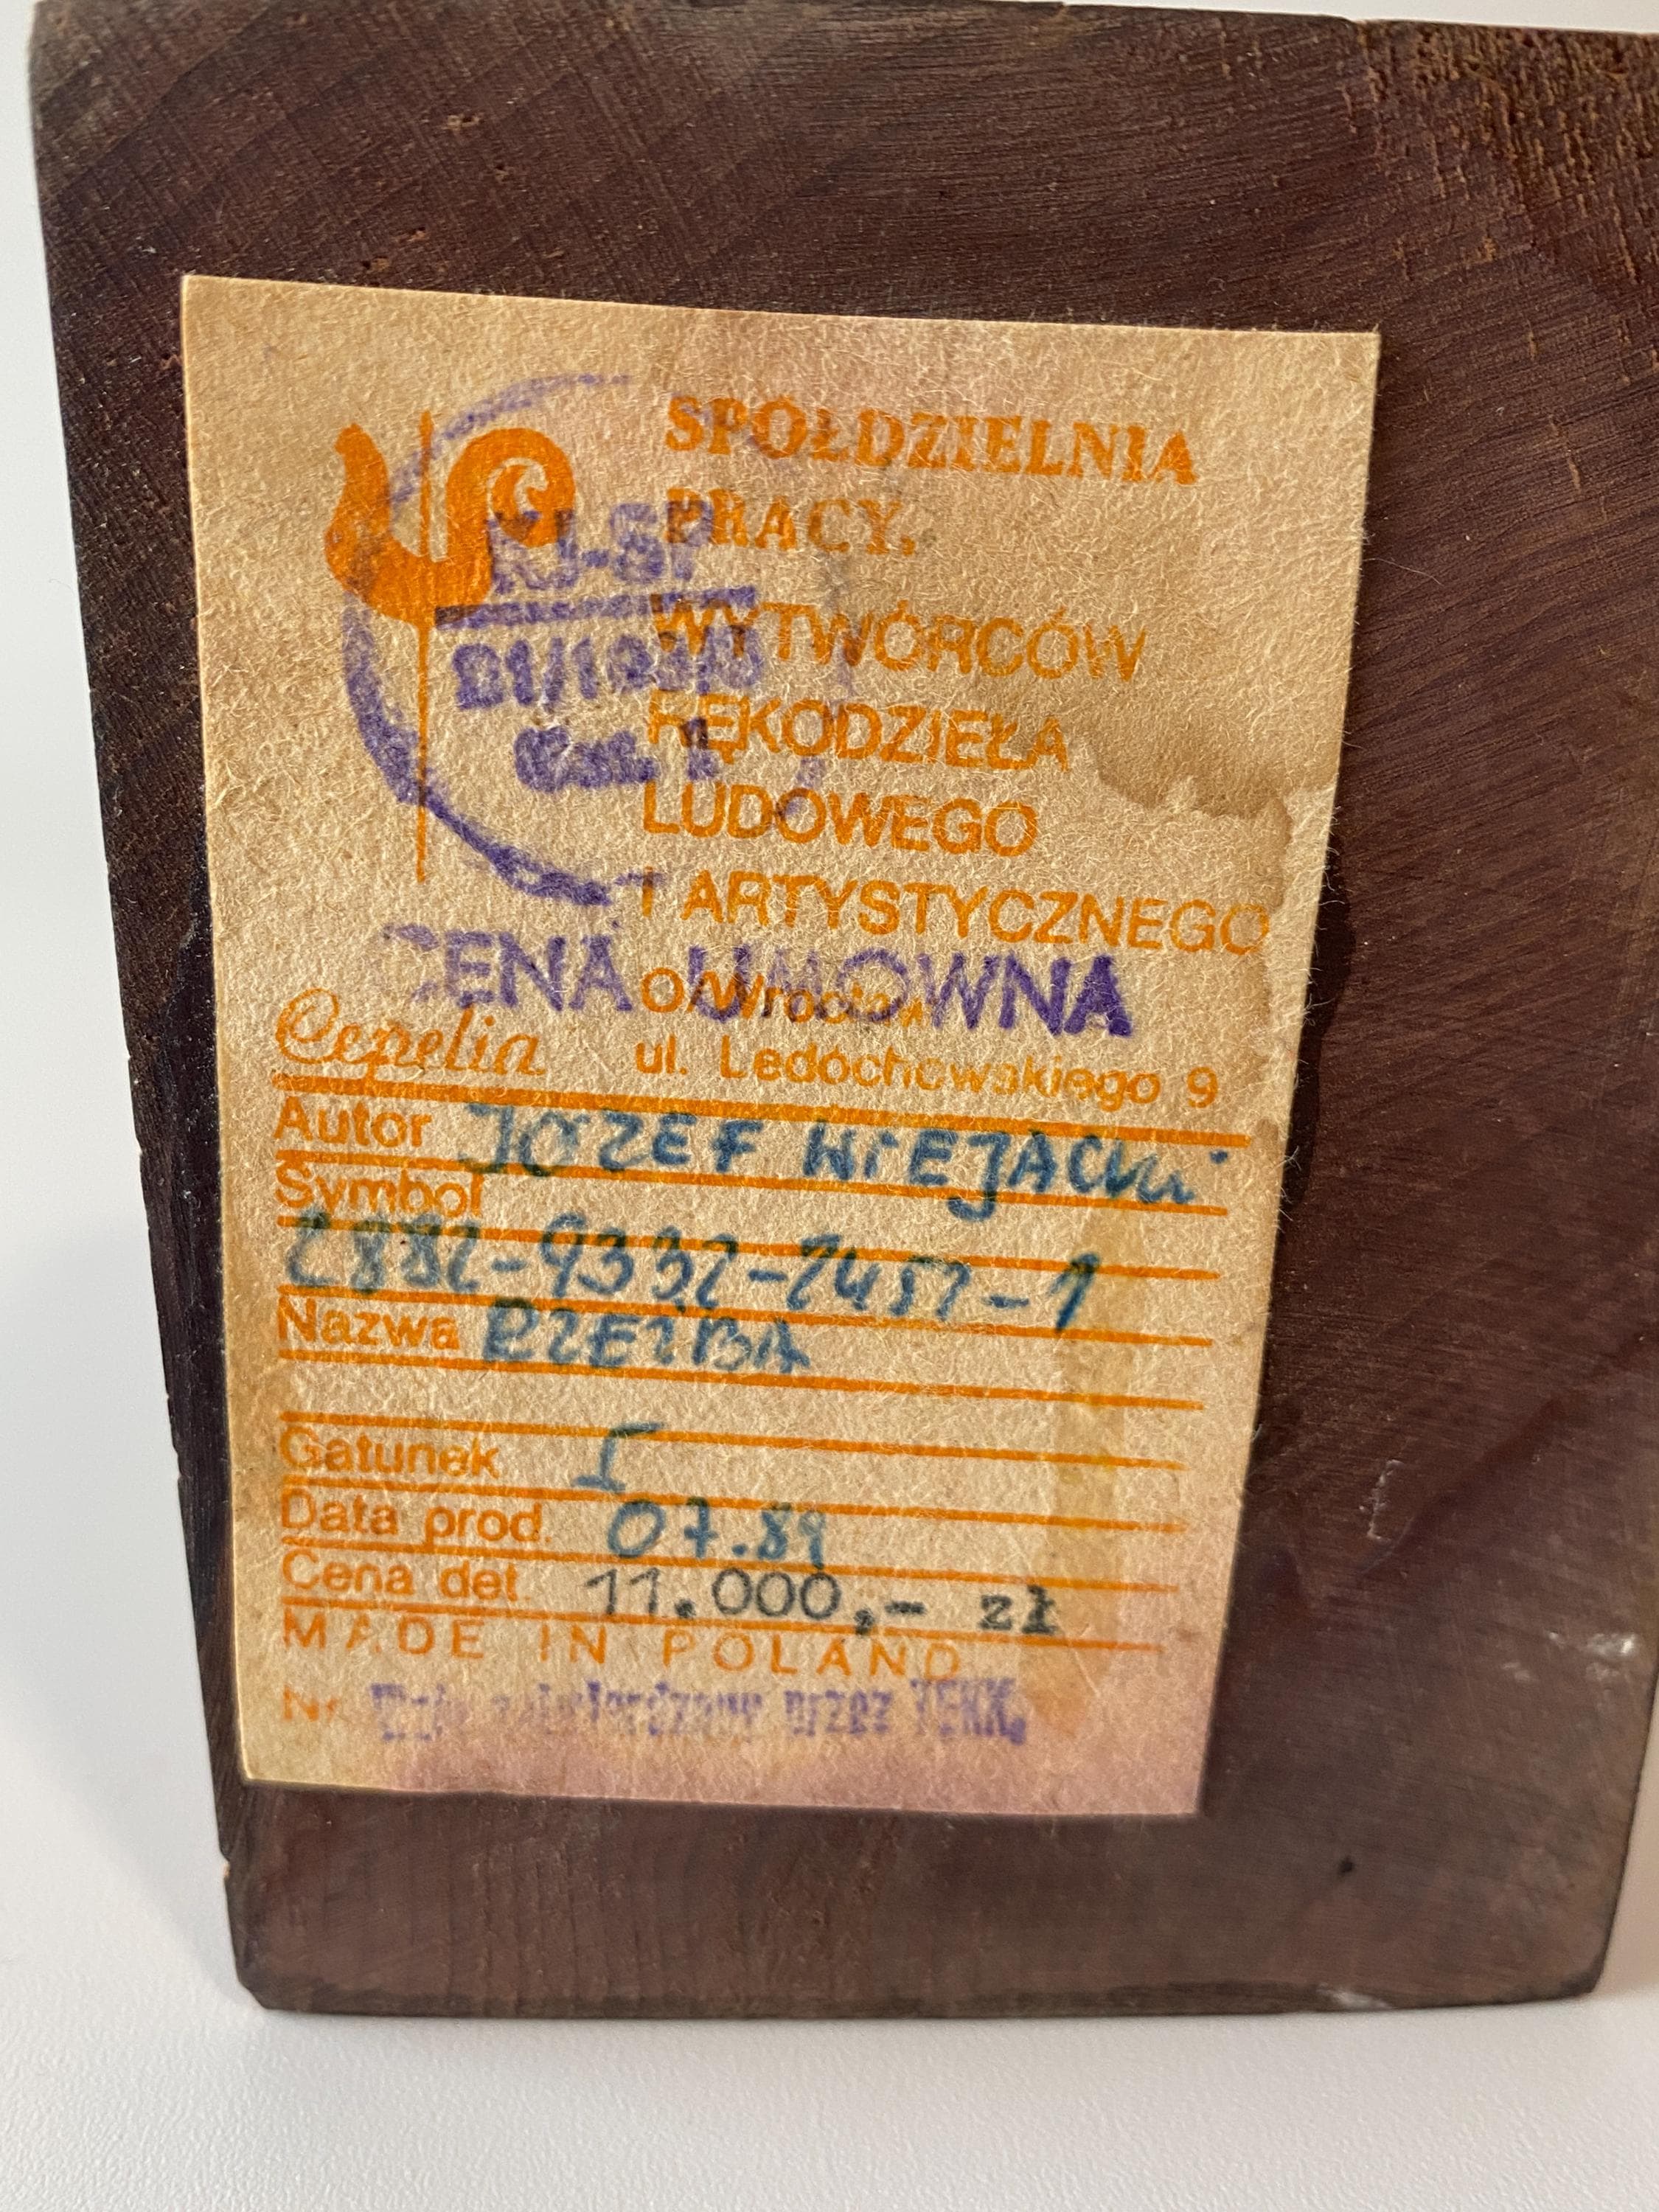 SPÓŁDZIELNIA
PRACY,
WYTWÓRCÓW
RĘKODZIEŁA
LUDOWEGO
I ARTYSTYCZNEGO
KJ-SP
Gat. 1
CENA UMOWNA
O/Wrocław
Cepelia
ul. Ledóchowskiego 9
Autor JÓZEF WIEJACKI
Symbol
2882-9332-2457-1
Nazwa RZEŹBA
Gatunek I
Data prod. 07.89
Cena det. 11.000,- zł
MADE IN POLAND
Nr zatwierdzony przez